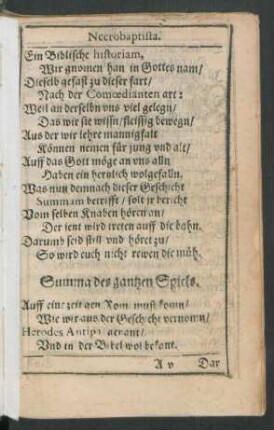 Necrobaptista.
Ein Biblische historiam,
Wir gnomen han in Gottes nam/
Dieselb gefast zu dieser fart/
Nach der Comœdianten art:
Weil an derselbn vns viel gelegn/
Das wir sie wissn/ fleissig bewegn/
Aus der wir lehre mannigfalt
Können nemen für jung vnd alt/
Auff das Gott möge an vns alln
Haben ein herzlich wolgefalln.
Was nun demnach dieser Geschicht
Summam betrifft/ solt jr bericht
Vom selben Knaben hören an/
Der jent wird treten auff die bahn.
Darumb seid still vnd höret zu/
So wird euch nicht rewen die müh.
Summa des gantzen Spiels.
Auff eine zeit gen Rom must komn/
Wie wir aus der Geschicht vernomn/
Herodes Antipa genant/
Vnd in der Bibel wol bekant.
A v Dar